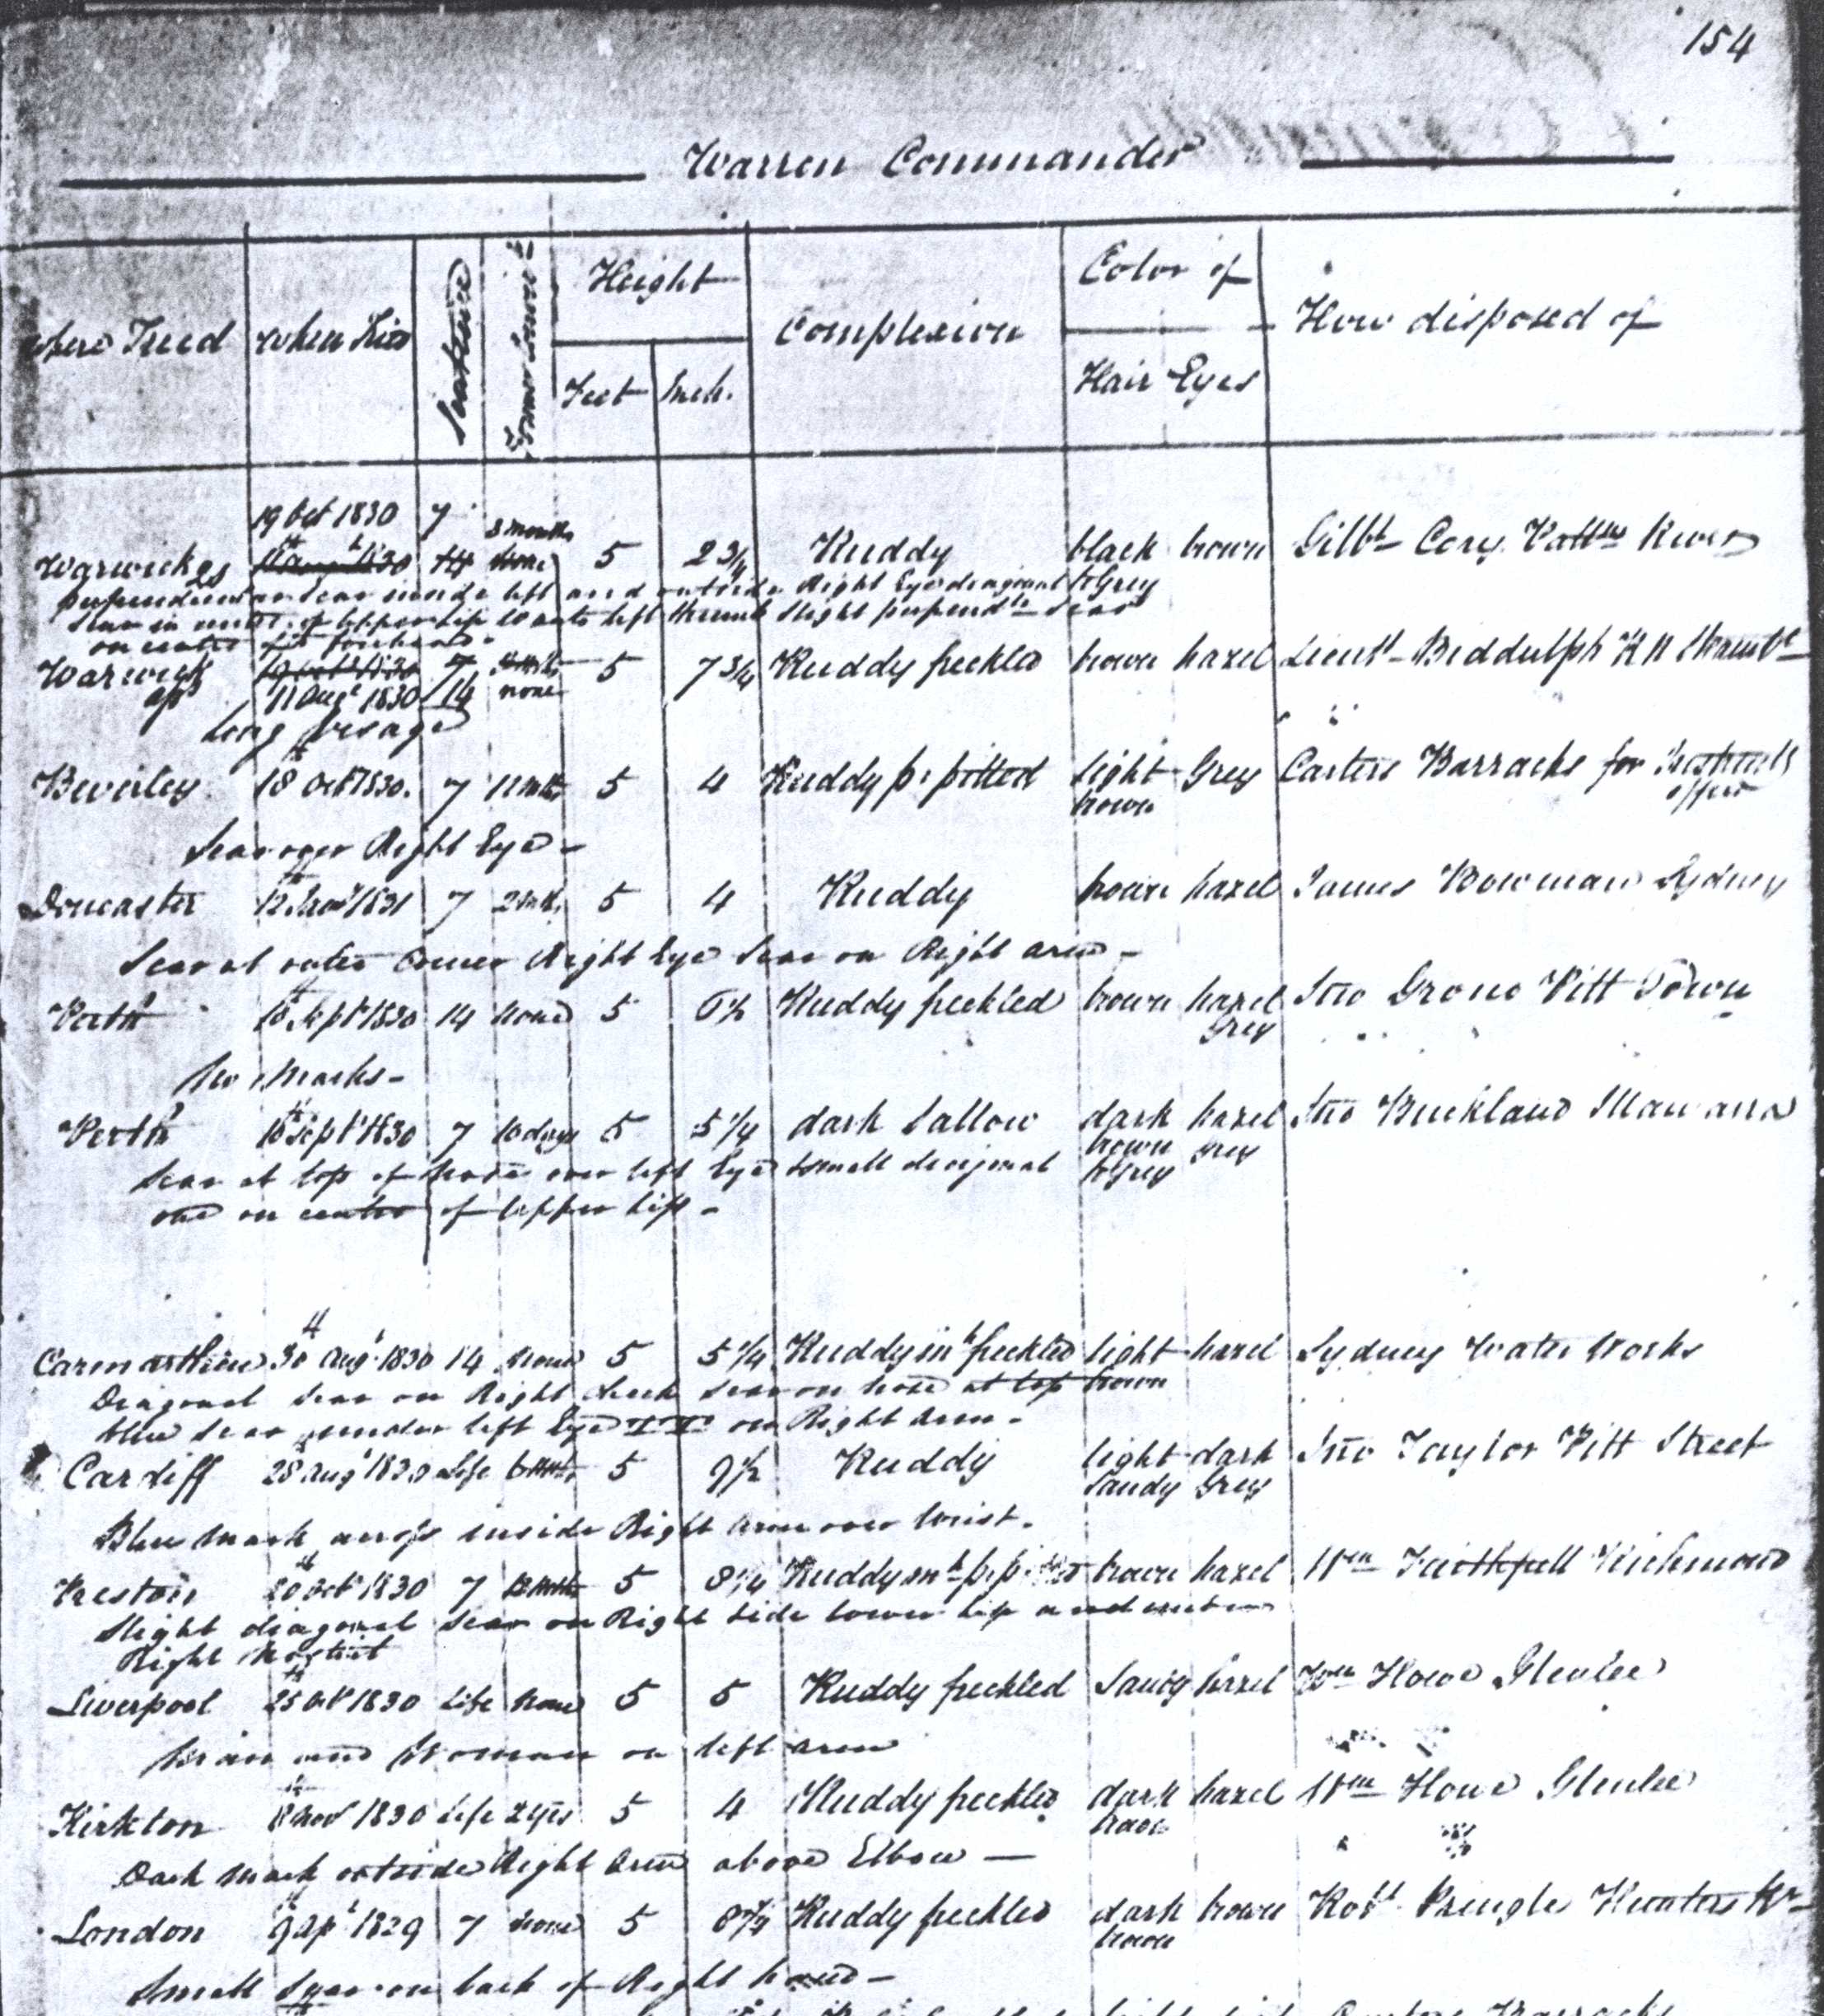 154
Warren Commander
where Tried when Tried Sentence Former Convict Height Complexion Color of How disposed of
Feet Inch. Hair Eyes
19 Oct 1830 7 3 months
Warwick 11th Augt 1830 14 none 5 2 3/4 Ruddy black brown Gilbt Cory Pattns River
to Grey
perpendicular Scar inside left and outside Right Eye diagonal
Scar in center of upper lip to left thumb slight perpendr Scar
on center of forehead.
Warwick 19 Oct 1830 7 5 7 3/4 Ruddy freckled brown hazel Lieutt Biddulph RN
aps 11 Augt 1830 14 none
Long visage
Beverley 18th Octr 1830. 7 11 mths 5 4 Ruddy p. pitted light Grey Carters Barracks for
brown
Scar over Right Eye -
Doncaster 1831 7 2 mths 5 4 Ruddy brown hazel James Bowman Sydney
Scar at outer corner Right Eye Scar on Right arm -
Perth 10th Sept 1830 14 none 5 6 1/2 Ruddy freckled brown hazel Jno Grono Pitt Town
Grey
No Marks -
Perth 10th Sept 1830 7 10 days 5 5 1/4 dark Sallow dark hazel Jno Buckland
brown grey
to Grey
Scar at top of nose over left Eye small diagonal
one on center of upper lip -
Carmarthen 30th Augt 1830 14 none 5 5 1/4 Ruddy mh freckled light hazel Sydney Water Works
brown
Diagonal Scar on Right cheek Scar on nose at top
blue Scar under left Eye on Right arm -
Cardiff 28 Augt 1830 Life 6 mths 5 9 1/2 Ruddy light dark Jno Taylor Pitt Street
Sandy Grey
Blue mark across inside Right arm over wrist.
Preston 20th Octr 1830 7 5 8 1/4 Ruddy mh p. pitted brown hazel Wm Faithfull Richmond
Slight diagonal Scar on Right side lower lip and
Right nostril
Liverpool 25th Oct 1830 Life none 5 5 Ruddy freckled Sandy hazel Wm Howe Glenlee
Man and Woman on left arm
Kirkton 8th Novr 1830 Life 2 yrs 5 4 Ruddy freckled dark hazel Wm Howe Glenlee
brown
Dark mark outside Right Arm above Elbow —
London 9th Apl 1829 7 none 5 8 3/4 Ruddy freckled dark brown Robt Pringle Hunters Rr
brown
Small Scar on back of Right hand -